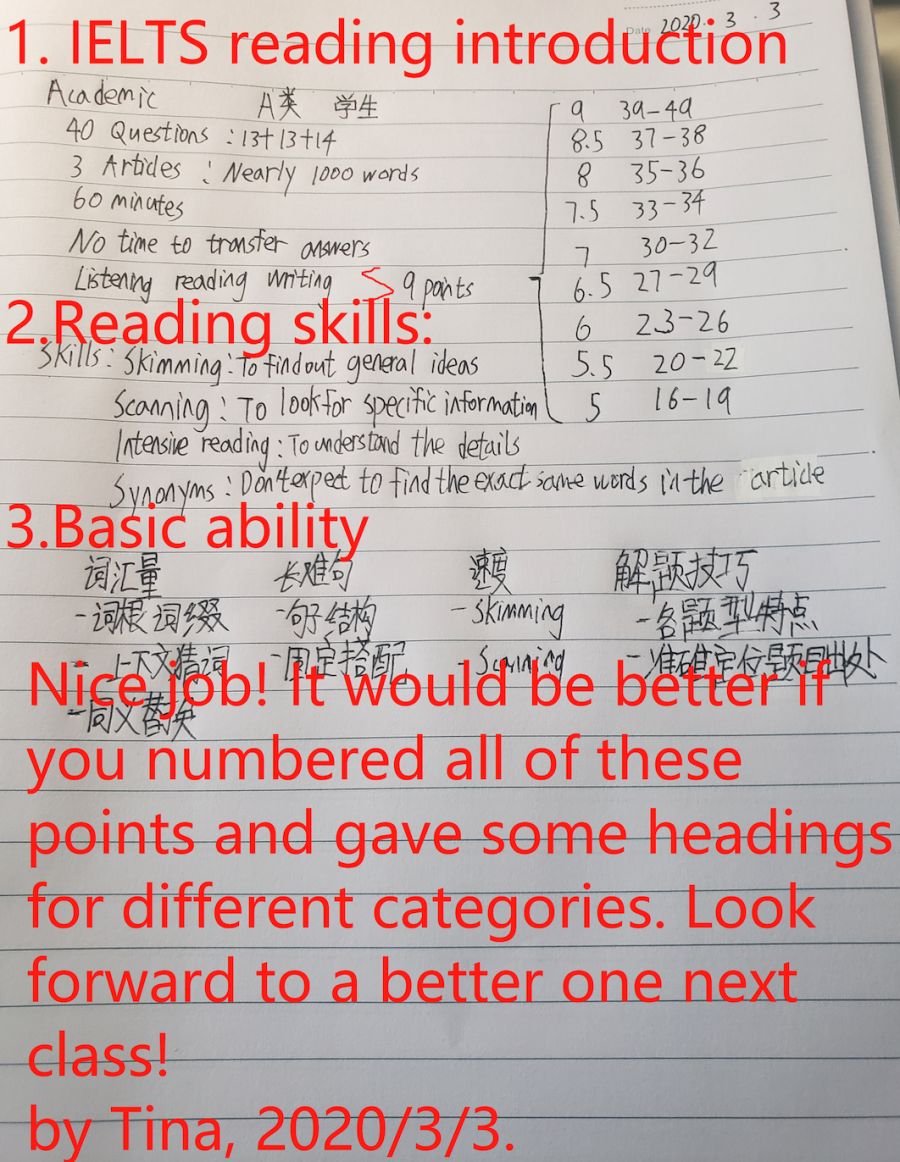 Date 2020 . 3 . 3
1. IELTS reading introduction
Academic A类 学生
40 Questions : 13+13+14
3 Articles : Nearly 1000 words
60 minutes
No time to transfer answers
Listening reading writing 9 points
9 39-49
8.5 37-38
8 35-36
7.5 33-34
7 30-32
6.5 27-29
6 23-26
5.5 20-22
5 16-19
2.Reading skills:
Skills: Skimming: To find out general ideas
Scanning: To look for specific information
Intensive reading: To understand the details
Synonyms: Don't expect to find the exact same words in the article
3.Basic ability
词汇量 长难句 速度 解题技巧
-词根 词缀 -句子结构 -Skimming -各题型特点
-上下文猜词 -固定搭配 -Scanning -准确定位题目出处
-同义替换
Nice job! It would be better if
you numbered all of these
points and gave some headings
for different categories. Look
forward to a better one next
class!
by Tina, 2020/3/3.